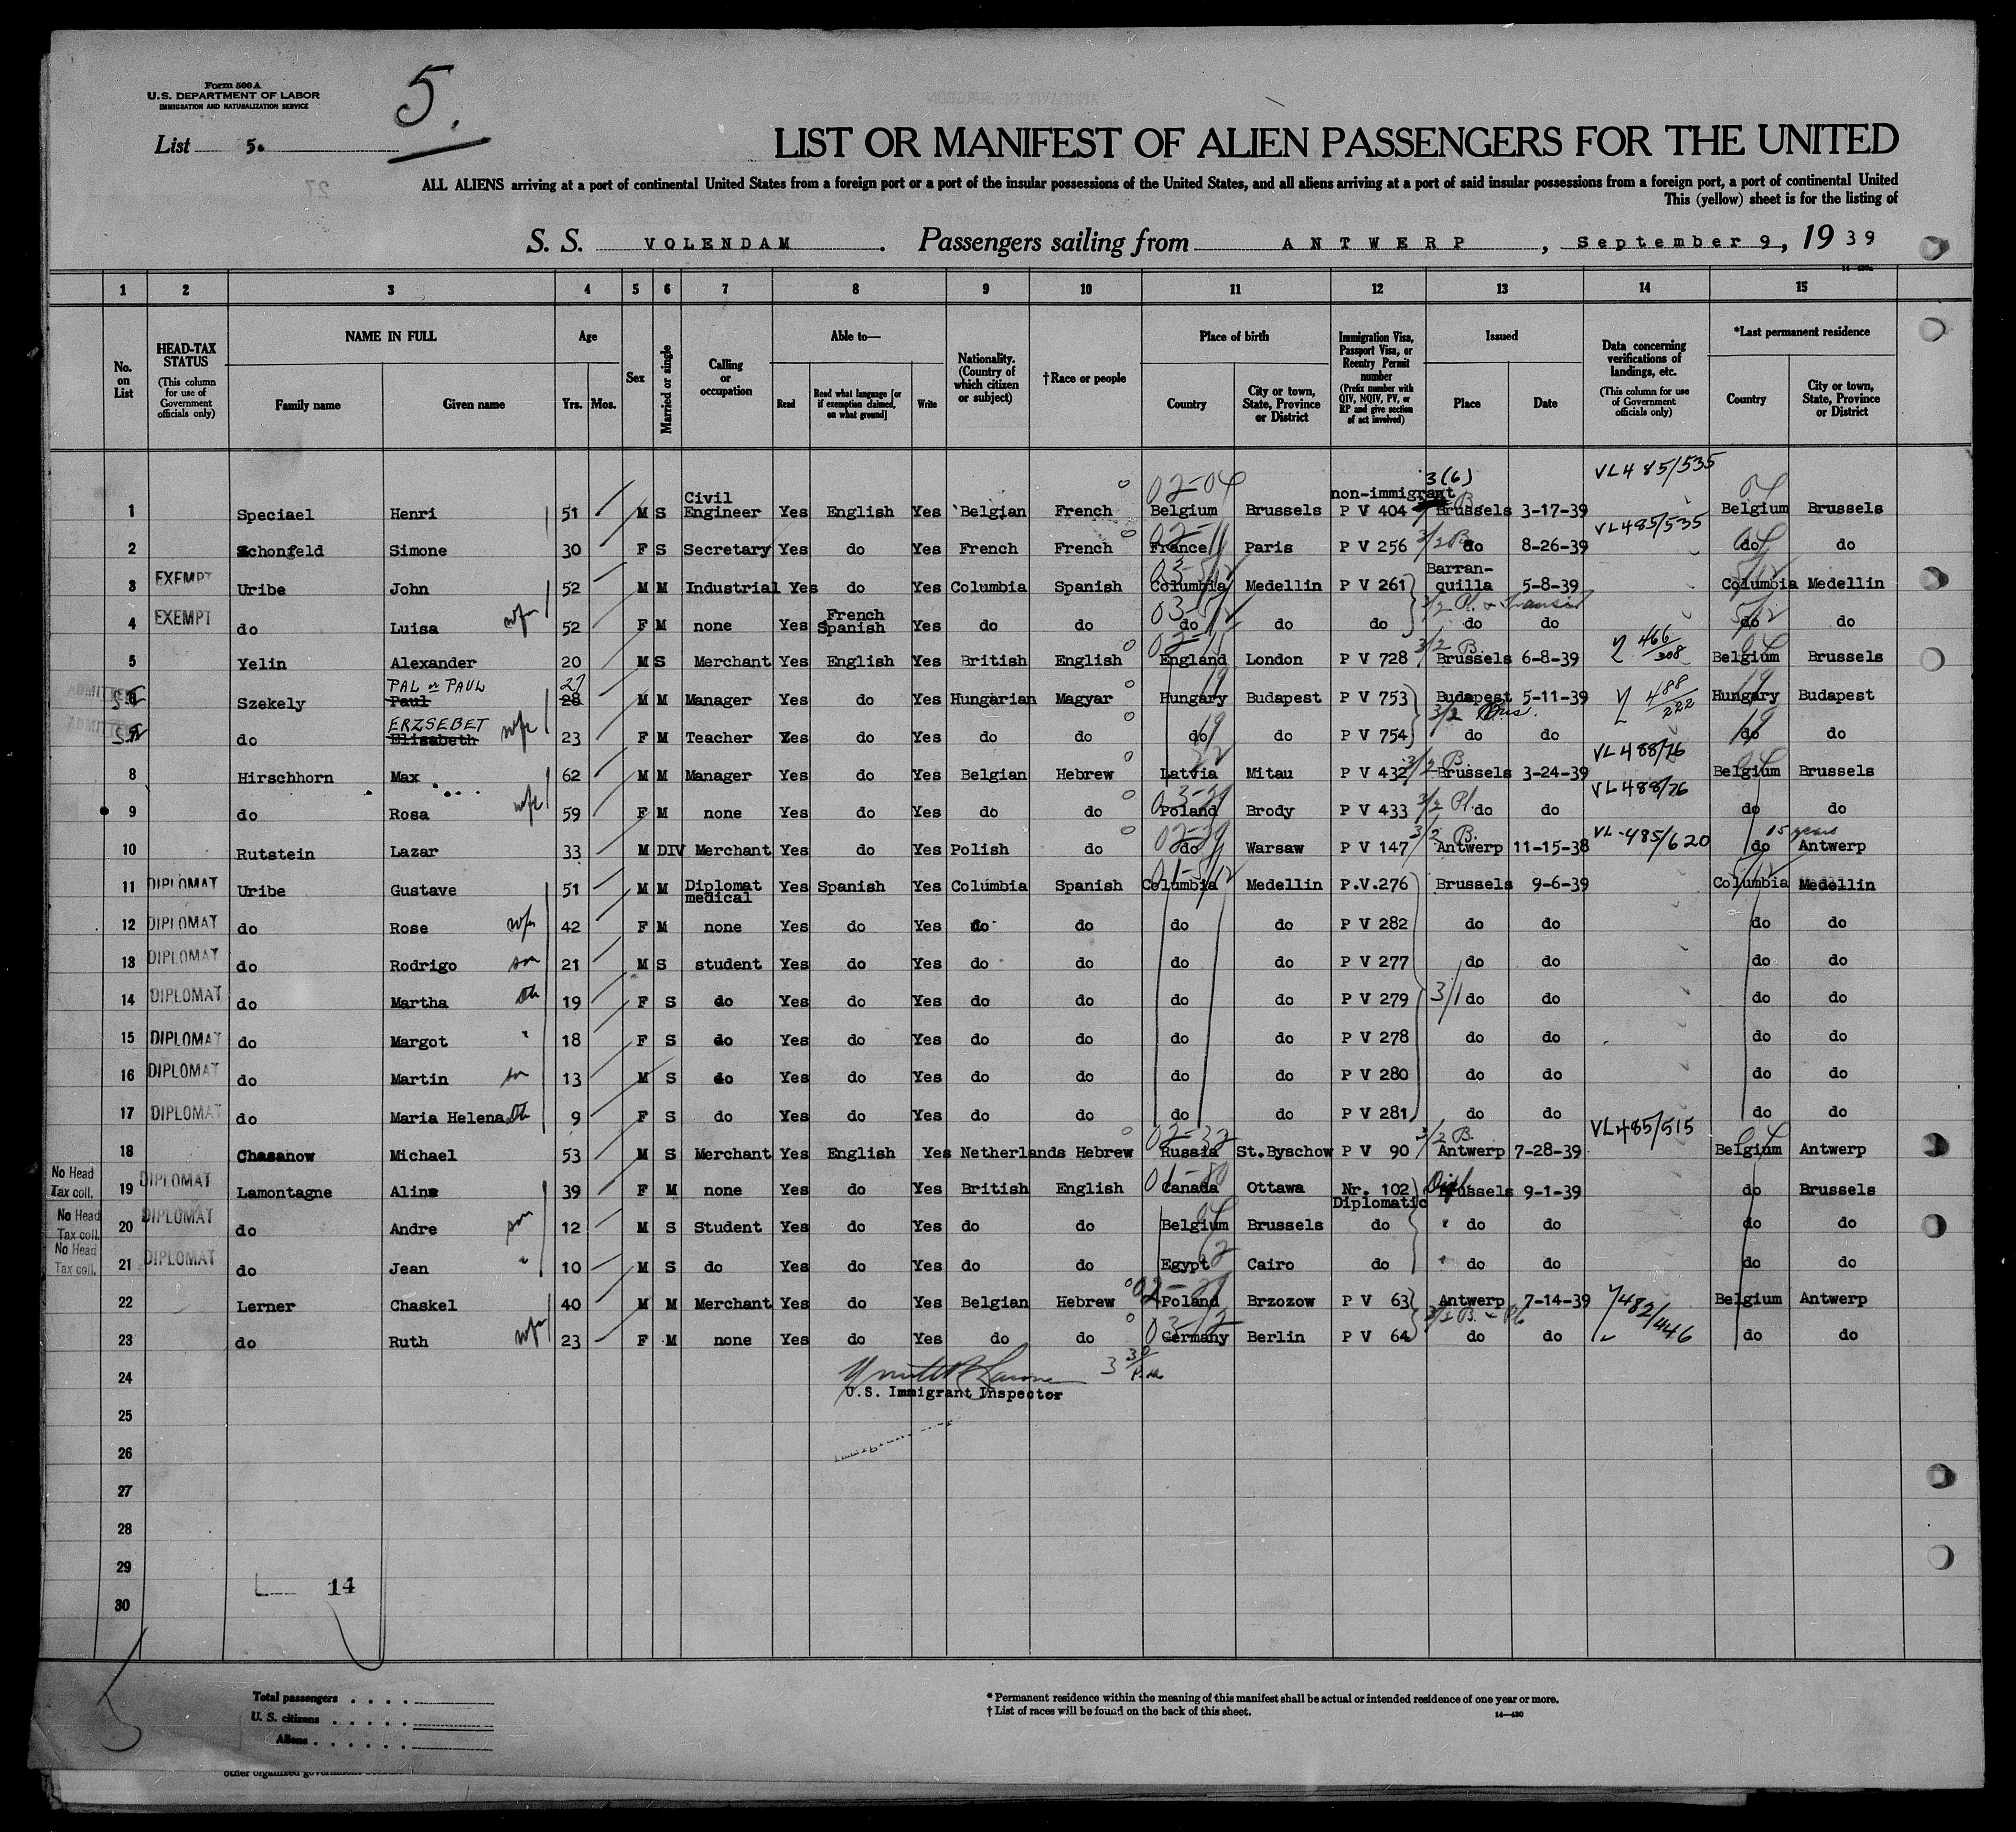 Form 500 A
U.S. DEPARTMENT OF LABOR
IMMIGRATION AND NATURALIZATION SERVICE
5.
List 5.
LIST OR MANIFEST OF ALIEN PASSENGERS FOR THE UNITED
ALL ALIENS arriving at a port of continental United States from a foreign port or a port of the insular possessions of the United States, and all aliens arriving at a port of said insular possessions from a foreign port, a port of continental United
This (yellow) sheet is for the listing of
S. S. VOLENDAM . Passengers sailing from ANTWERP , September 9, 19 39
1 2 3 4 5 6 7 8 9 10 11 12 13 14 15
No. on List
HEAD-TAX STATUS (This column for use of Government officials only)
NAME IN FULL
Family name Given name
Age
Yrs. Mos.
Sex
Married or single
Calling or occupation
Able to—
Read Read what language [or if exemption claimed, on what ground] Write
Nationality. (Country of which citizen or subject)
†Race or people
Place of birth
Country City or town, State, Province or District
Immigration Visa, Passport Visa, or Reentry Permit number (Prefix number with QIV, NQIV, PV, or RP and give section of act involved)
Issued
Place Date
Data concerning verifications of landings, etc. (This column for use of Government officials only)
*Last permanent residence
Country City or town, State, Province or District
1 Speciael Henri 51 M S Civil Engineer Yes English Yes Belgian French 02-04 Belgium Brussels non-immigrant P V 404 3(6) B Brussels 3-17-39 VL485/535 Belgium Brussels
2 Schonfeld Simone 30 F S Secretary Yes do Yes French French France Paris P V 256 3/2 B do 8-26-39 VL485/535 do do
3 EXEMPT Uribe John 52 M M Industrial Yes do Yes Columbia Spanish Columbia Medellin P V 261 Barran-quilla 5-8-39 Columbia Medellin
4 EXEMPT do Luisa wife 52 F M none Yes French Spanish Yes do do do do do 3/2 Pl. & Transit do do do do
5 Yelin Alexander 20 M S Merchant Yes English Yes British English England London P V 728 3/2 B. Brussels 6-8-39 466/308 Belgium Brussels
ADMITTED 6 Szekely PAL or PAUL Paul 27 28 M M Manager Yes do Yes Hungarian Magyar 19 Hungary Budapest P V 753 Budapest 5-11-39 488/222 19 Hungary Budapest
ADMITTED do ERZSEBET Elisabeth wife 23 F M Teacher Yes do Yes do do 19 do do P V 754 3/2 Bus. do do 19 do do
8 Hirschhorn Max 62 M M Manager Yes do Yes Belgian Hebrew Latvia Mitau P V 432 3/2 B. Brussels 3-24-39 VL488/76 Belgium Brussels
9 do Rosa wife 59 F M none Yes do Yes do do Poland Brody P V 433 3/2 Pl. do do VL488/76 do do
10 Rutstein Lazar 33 M DIV Merchant Yes do Yes Polish do do Warsaw P V 147 3/2 B. Antwerp 11-15-38 VL-485/620 do 15 years Antwerp
11 DIPLOMAT Uribe Gustave 51 M M Diplomat medical Yes Spanish Yes Columbia Spanish Columbia Medellin P.V.276 Brussels 9-6-39 Columbia Medellin
12 DIPLOMAT do Rose wife 42 F M none Yes do Yes do do do do P V 282 do do do do
13 DIPLOMAT do Rodrigo son 21 M S student Yes do Yes do do do do P V 277 do do do do
14 DIPLOMAT do Martha Dh 19 F S do Yes do Yes do do do do P V 279 3/1 do do do do
15 DIPLOMAT do Margot " 18 F S do Yes do Yes do do do do P V 278 do do do do
16 DIPLOMAT do Martin son 13 M S do Yes do Yes do do do do P V 280 do do do do
17 DIPLOMAT do Maria Helena Dh 9 F S do Yes do Yes do do do do P V 281 do do do do
18 Chasanow Michael 53 M S Merchant Yes English Yes Netherlands Hebrew 02-32 Russia St.Byschow P V 90 3/2 B. Antwerp 7-28-39 VL485/515 Belgium Antwerp
No Head Tax coll. 19 DIPLOMAT Lamontagne Aline 39 F M none Yes do Yes British English Canada Ottawa Nr. 102 Diplomatic Dipl Brussels 9-1-39 do Brussels
No Head Tax coll. 20 DIPLOMAT do Andre son 12 M S Student Yes do Yes do do Belgium Brussels do " do do do do
No Head Tax coll. 21 DIPLOMAT do Jean " 10 M S do Yes do Yes do do Egypt Cairo do " do do do do
22 Lerner Chaskel 40 M M Merchant Yes do Yes Belgian Hebrew Poland Brzozow P V 63 Antwerp 7-14-39 482/446 Belgium Antwerp
23 do Ruth wife 23 F M none Yes do Yes do do Germany Berlin P V 64 3/2 B. & Pl. do do do do
24 3 30 P.M.
U.S. Immigrant Inspector
25
26
27
28
29
14
30
Total passengers . . . .
U. S. citizens . . . . .
Aliens . . . . . .
* Permanent residence within the meaning of this manifest shall be actual or intended residence of one year or more.
† List of races will be found on the back of this sheet.
14—430